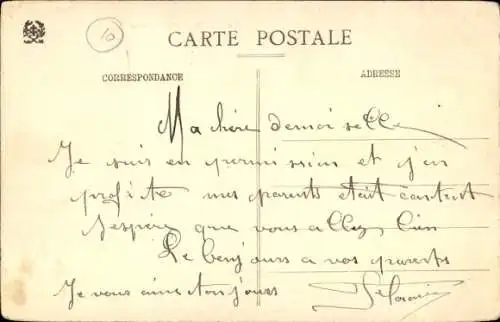 10
CARTE POSTALE
CORRESPONDANCE
ADRESSE
Ma chère demoiselle
Je suis en permission et j'en
profite mes parents était contant
J'espère que vous allez bien
Le bonjours a vos parents
Je vous aime toujours